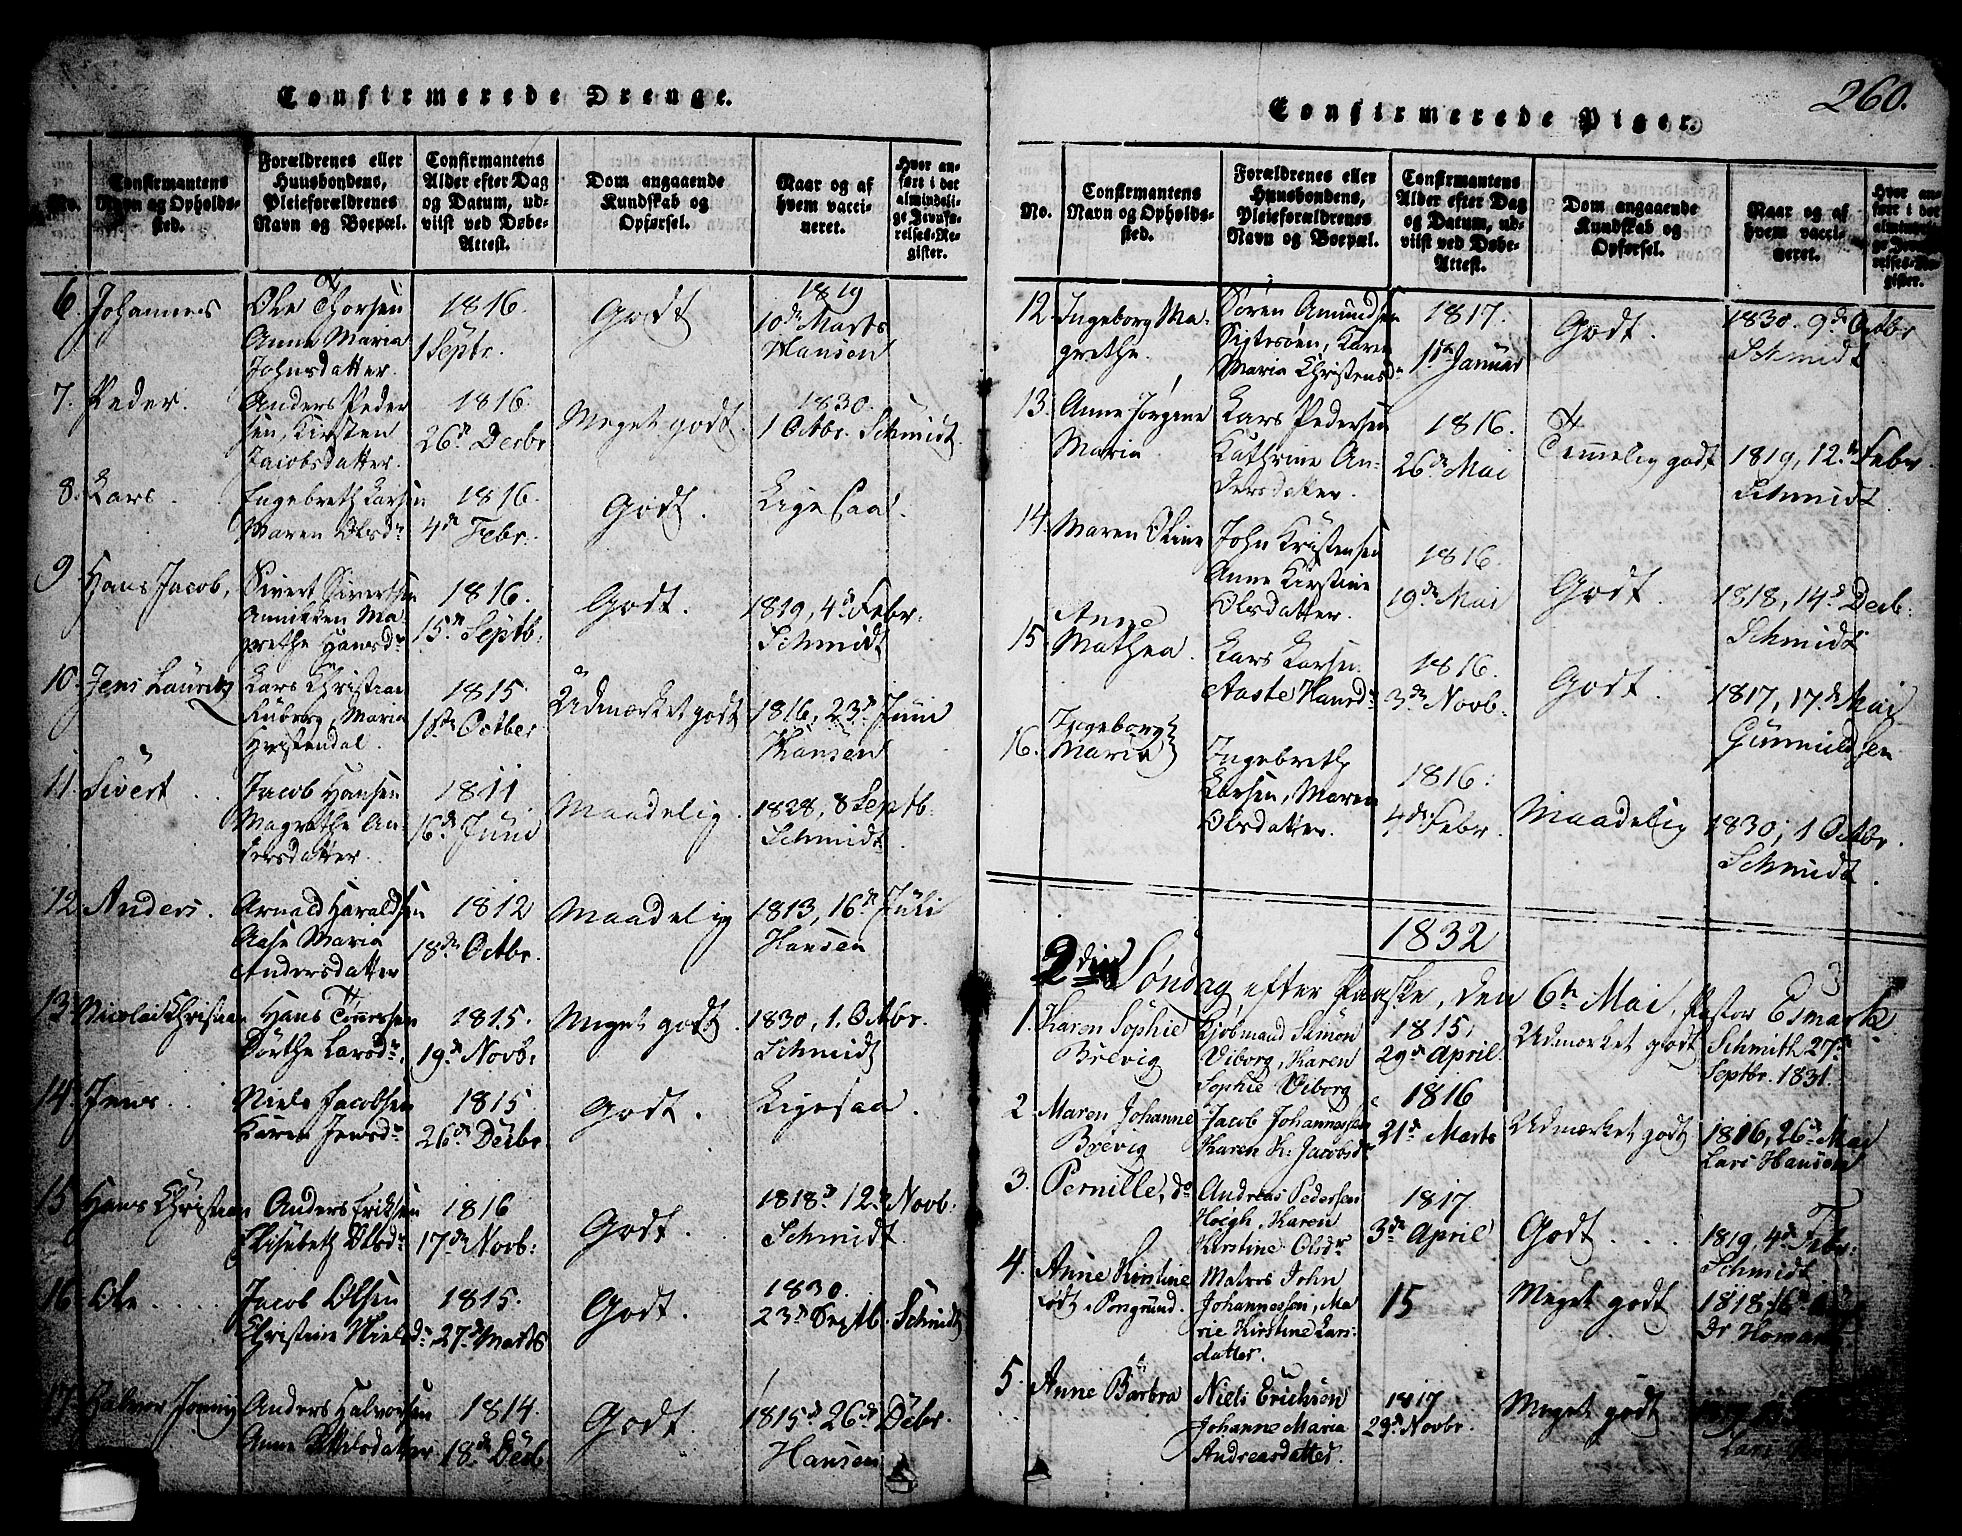 260.
Confirmerede Drenge.
No.
Confirmantens Navn og Opholds-sted.
Forældrenes eller Huusbondens, Pleieforældrenes Navn og Boepæl.
Confirmantens Alder efter Dag og Datum, ud-viist ved Døbe-Attest.
Dom angaaende Kundskab og Opførsel.
Naar og af hvem vacci-neret.
Hvor an-ført i det almindeli-ge Jevnfø-relses-Re-gister.
6. Johannes
Ole Thorsen
Anne Maria
Johnsdatter.
1816.
1 Septr.
Godt
1819
10de Marts
Hansen
7. Peder.
Anders Peder
sen, Kirsten
Jacobsdatter.
1816.
26de Decbr
Meget godt.
1830.
1 Octbr. Schmidt.
8. Lars.
Engebreth Larsen
Maren Olsdr
1816.
4de Febr.
Godt.
Ligesaa.
9 Hans Jacob,
Sivert Sivertsen
Annikken Ma-
grethe Hansdr
1816.
15de Septb.
Godt.
1819, 4de Febr.
Schmidt
10. Jens Lauritz
Lars Christian
Ruberg, Maria
1815
1ste Octber
Udmærket godt
1816, 23de Juni
Hansen
11. Sivert
Jacob Hansen
Magrethe An-
dersdatter.
1811
16de Juni
Maadelig.
1828, 8 Septb.
Schmidt
12. Anders.
Arnald Haraldsen
Aase Maria
Andersdatter
1812
18de Octbr.
Maadelig
1813, 16de Juli
Hansen
13. Nicolai Christian
Hans Tønnessen
Dorthe Larsdr.
1815.
19de Novb.
Meget godt.
1830, 1. Octbr.
Schmidt
14. Jens
Niels Jacobsen
Karen Jensdr
1815
26de Decbr.
Godt.
Ligesaa.
15 Hans Christian
Anders Eriksen
Elisabeth Olsdr
1816
17de Novb:
Godt.
1818 12 Novb:
Schmidt.
16. Ole
Jacob Olsen
Christine Nielsdr
1815.
27de Marts
Godt.
1830.
23de Septb. Schmidt
17. Halvor
Anders Halvorsen
Anne
1814.
18de Decb
Godt.
1815 26de Decbr.
Hansen
Confirmerede Piger.
No.
Confirmantens Navn og Opholds-sted.
Forældrenes eller Huusbondens, Pleieforældrenes Navn og Boepæl.
Confirmantens Alder efter Dag og Datum, ud-viist ved Døbe-Attest.
Dom angaaende Kundskab og Opførsel.
Naar og af hvem vacci-neret.
Hvor an-ført i det almindeli-ge Jevnfø-relses-Re-gister.
12. Ingeborg Ma-
grethe.
Søren Amundsen
Sigtesøen, Karen
Maria Christensdr
1817.
1ste Januar
Godt.
1830. 9de Octbr
Schmidt
13. Anne Jørgine
Maria
Lars Pedersen
Kathrine An-
dersdatter.
1816.
26de Mai
Temmelig godt
1819, 12te Febr.
Schmidt.
14. Maren Oline
John Kristensen
Anne Kirstine
Olsdatter.
1816.
19de Mai
Godt.
1818, 14de Decb.
Schmidt
15. Anne
Mathea.
Lars Larsen
Aaste Hansdr
1816.
3de Novb.
Godt.
1817, 17de Mai
Gunnuldsen
16. Ingeborg
Maria
Ingebreth
Larsen, Maren
Olsdatter.
1816.
4de Febr.
Maadelig
1830, 1 Octbr.
Schmidt.
1832
2den Søndag efter Paaske, den 6te Mai, Pastor Esmark.
1. Karen Sophie
Brevig
Kjøbmand Simon
Wiborg, Karen
Sophie Wiborg
1815
29de April.
Udmærket godt
Schmith 27de
Septbr. 1831.
2 Maren Johanne
Brevig
Jacob Johannessen
Karen K. Jacobsdr
1816
21de Marts
Udmærket godt
1816, 26de Mai
Lars Hansen
3. Pernille, do
Andreas Pedersen
Høegh, Karen
Kirstine Olsdr
1817
3de April
Godt.
1819, 4de Febr.
Schmidt
4. Anne Kirstine
Født i Porsgrund.
Matros John
Johannessen, Ma
rie Kirstine Lars-
datter.
15
Meget godt
1818
5. Anne Barbra
Niels Erichsen
Johanne Maria
Andreasdatter.
1817
29de Novbr.
Meget godt
Lars